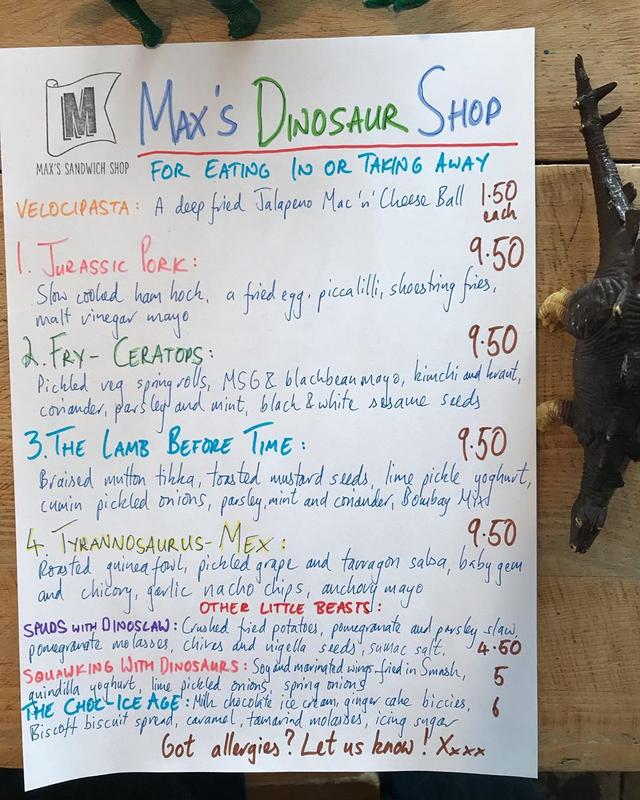 M
MAX'S SANDWICH SHOP
MAX'S DINOSAUR SHOP
FOR EATING IN OR TAKING AWAY
VELOCIPASTA: A deep fried Jalapeno Mac 'n' Cheese Ball 1.50 each
1. JURASSIC PORK: 9.50
Slow cooked ham hock, a fried egg, piccalilli, shoestring fries,
malt vinegar mayo
2. FRY-CERATOPS: 9.50
Pickled veg spring rolls, MSG & blackbean mayo, kimchi and kraut,
coriander, parsley and mint, black & white sesame seeds
3. THE LAMB BEFORE TIME: 9.50
Braised mutton tikka, toasted mustard seeds, lime pickle yoghurt,
cumin pickled onions, parsley, mint and coriander, Bombay Mix
4. TYRANNOSAURUS-MEX: 9.50
Roasted guinea fowl, pickled grape and tarragon salsa, baby gem
and chicory, garlic nacho chips, anchovy mayo
OTHER LITTLE BEASTS:
SPUDS WITH DINOSLAW: Crushed fried potatoes, pomegranate and parsley slaw,
pomegranate molasses, chives and nigella seeds, sumac salt. 4.50
SQUAWKING WITH DINOSAURS: Soy and marinated wings fried in Smash, 5
guindilla yoghurt, lime pickled onions, spring onions
THE CHOC-ICE AGE: Milk chocolate ice cream, ginger cake biccies, 6
Biscoff biscuit spread, caramel, tamarind molasses, icing sugar
Got allergies? Let us know! Xxxx